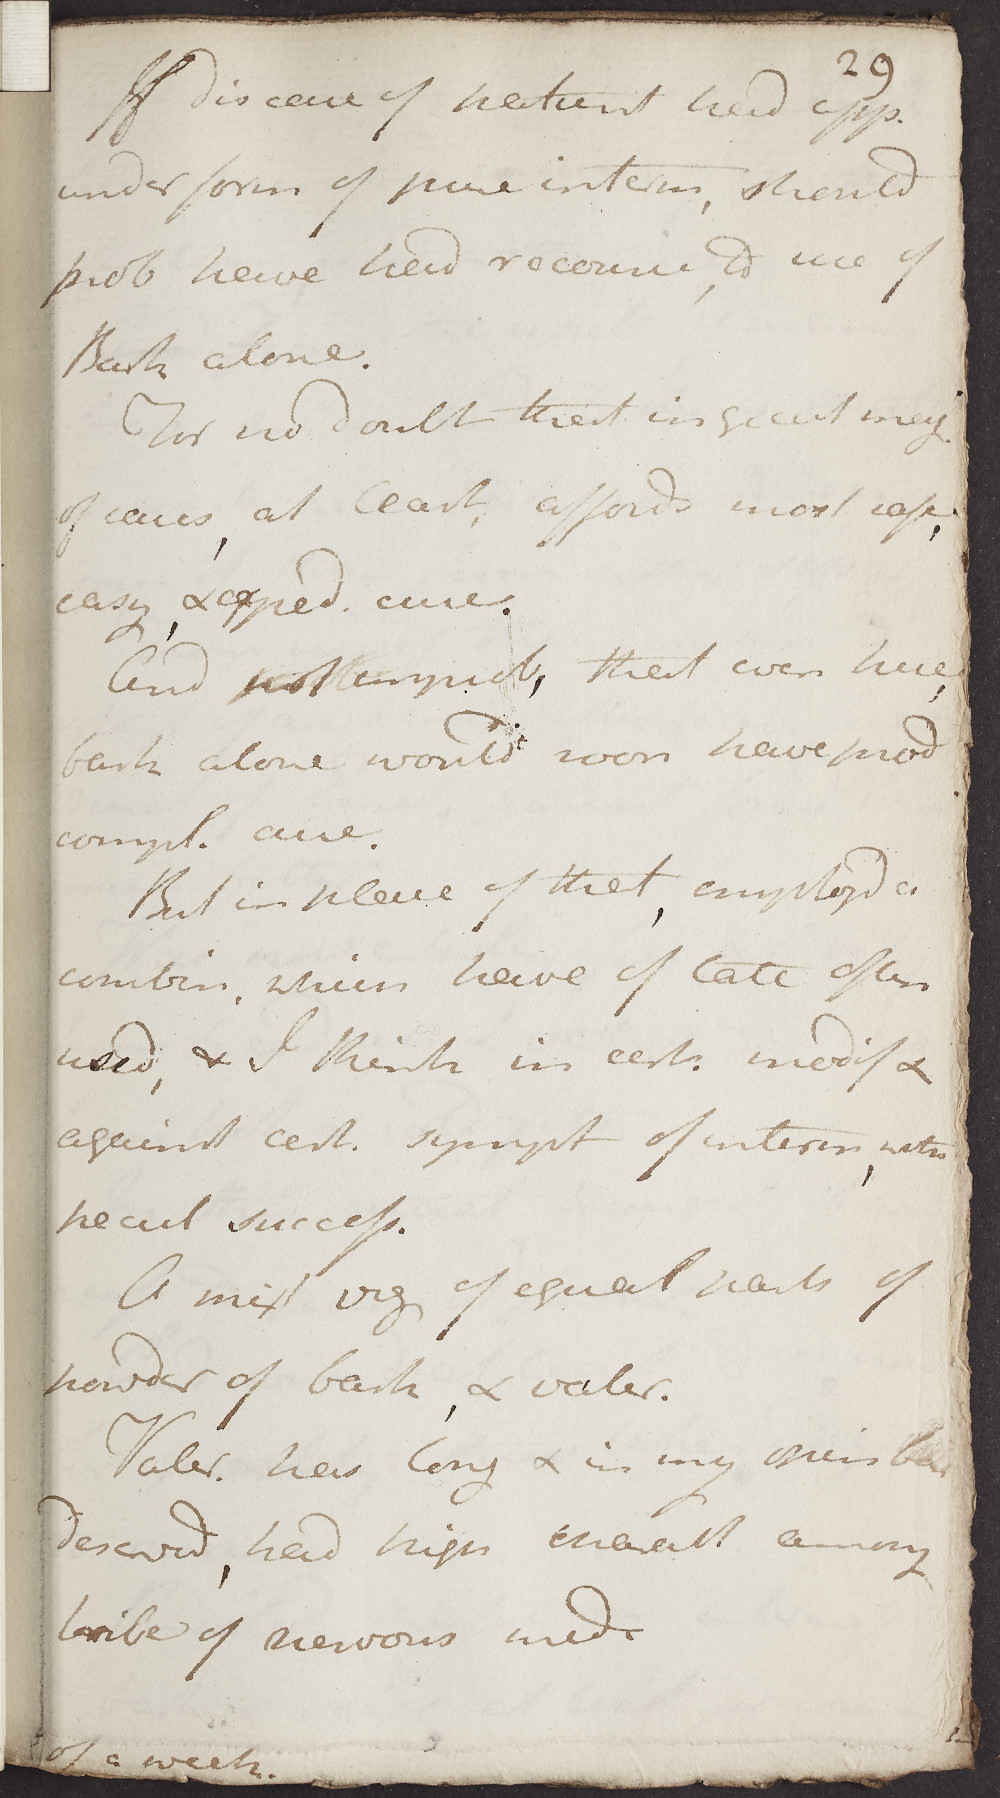 29
If disease of patient had app.
under form of pure interm, should
prob have had recourse, to use of
Bark alone.
For no doubt that in great maj.
of cases, at least, affords most eff,
easy, & exped. cure.
And not improb, that even here,
bark alone would soon have prod
compl. cure.
But in place of that, employd a
combin. which have of late often
used, & I think in cert. modif &
against cert. sympt of interm, with
pecul success.
A mixt of equal parts of
powder of bark, & valer.
Valer. has long & in my opin
deserved, had high charact among
tribe of nervous med.
of a week.